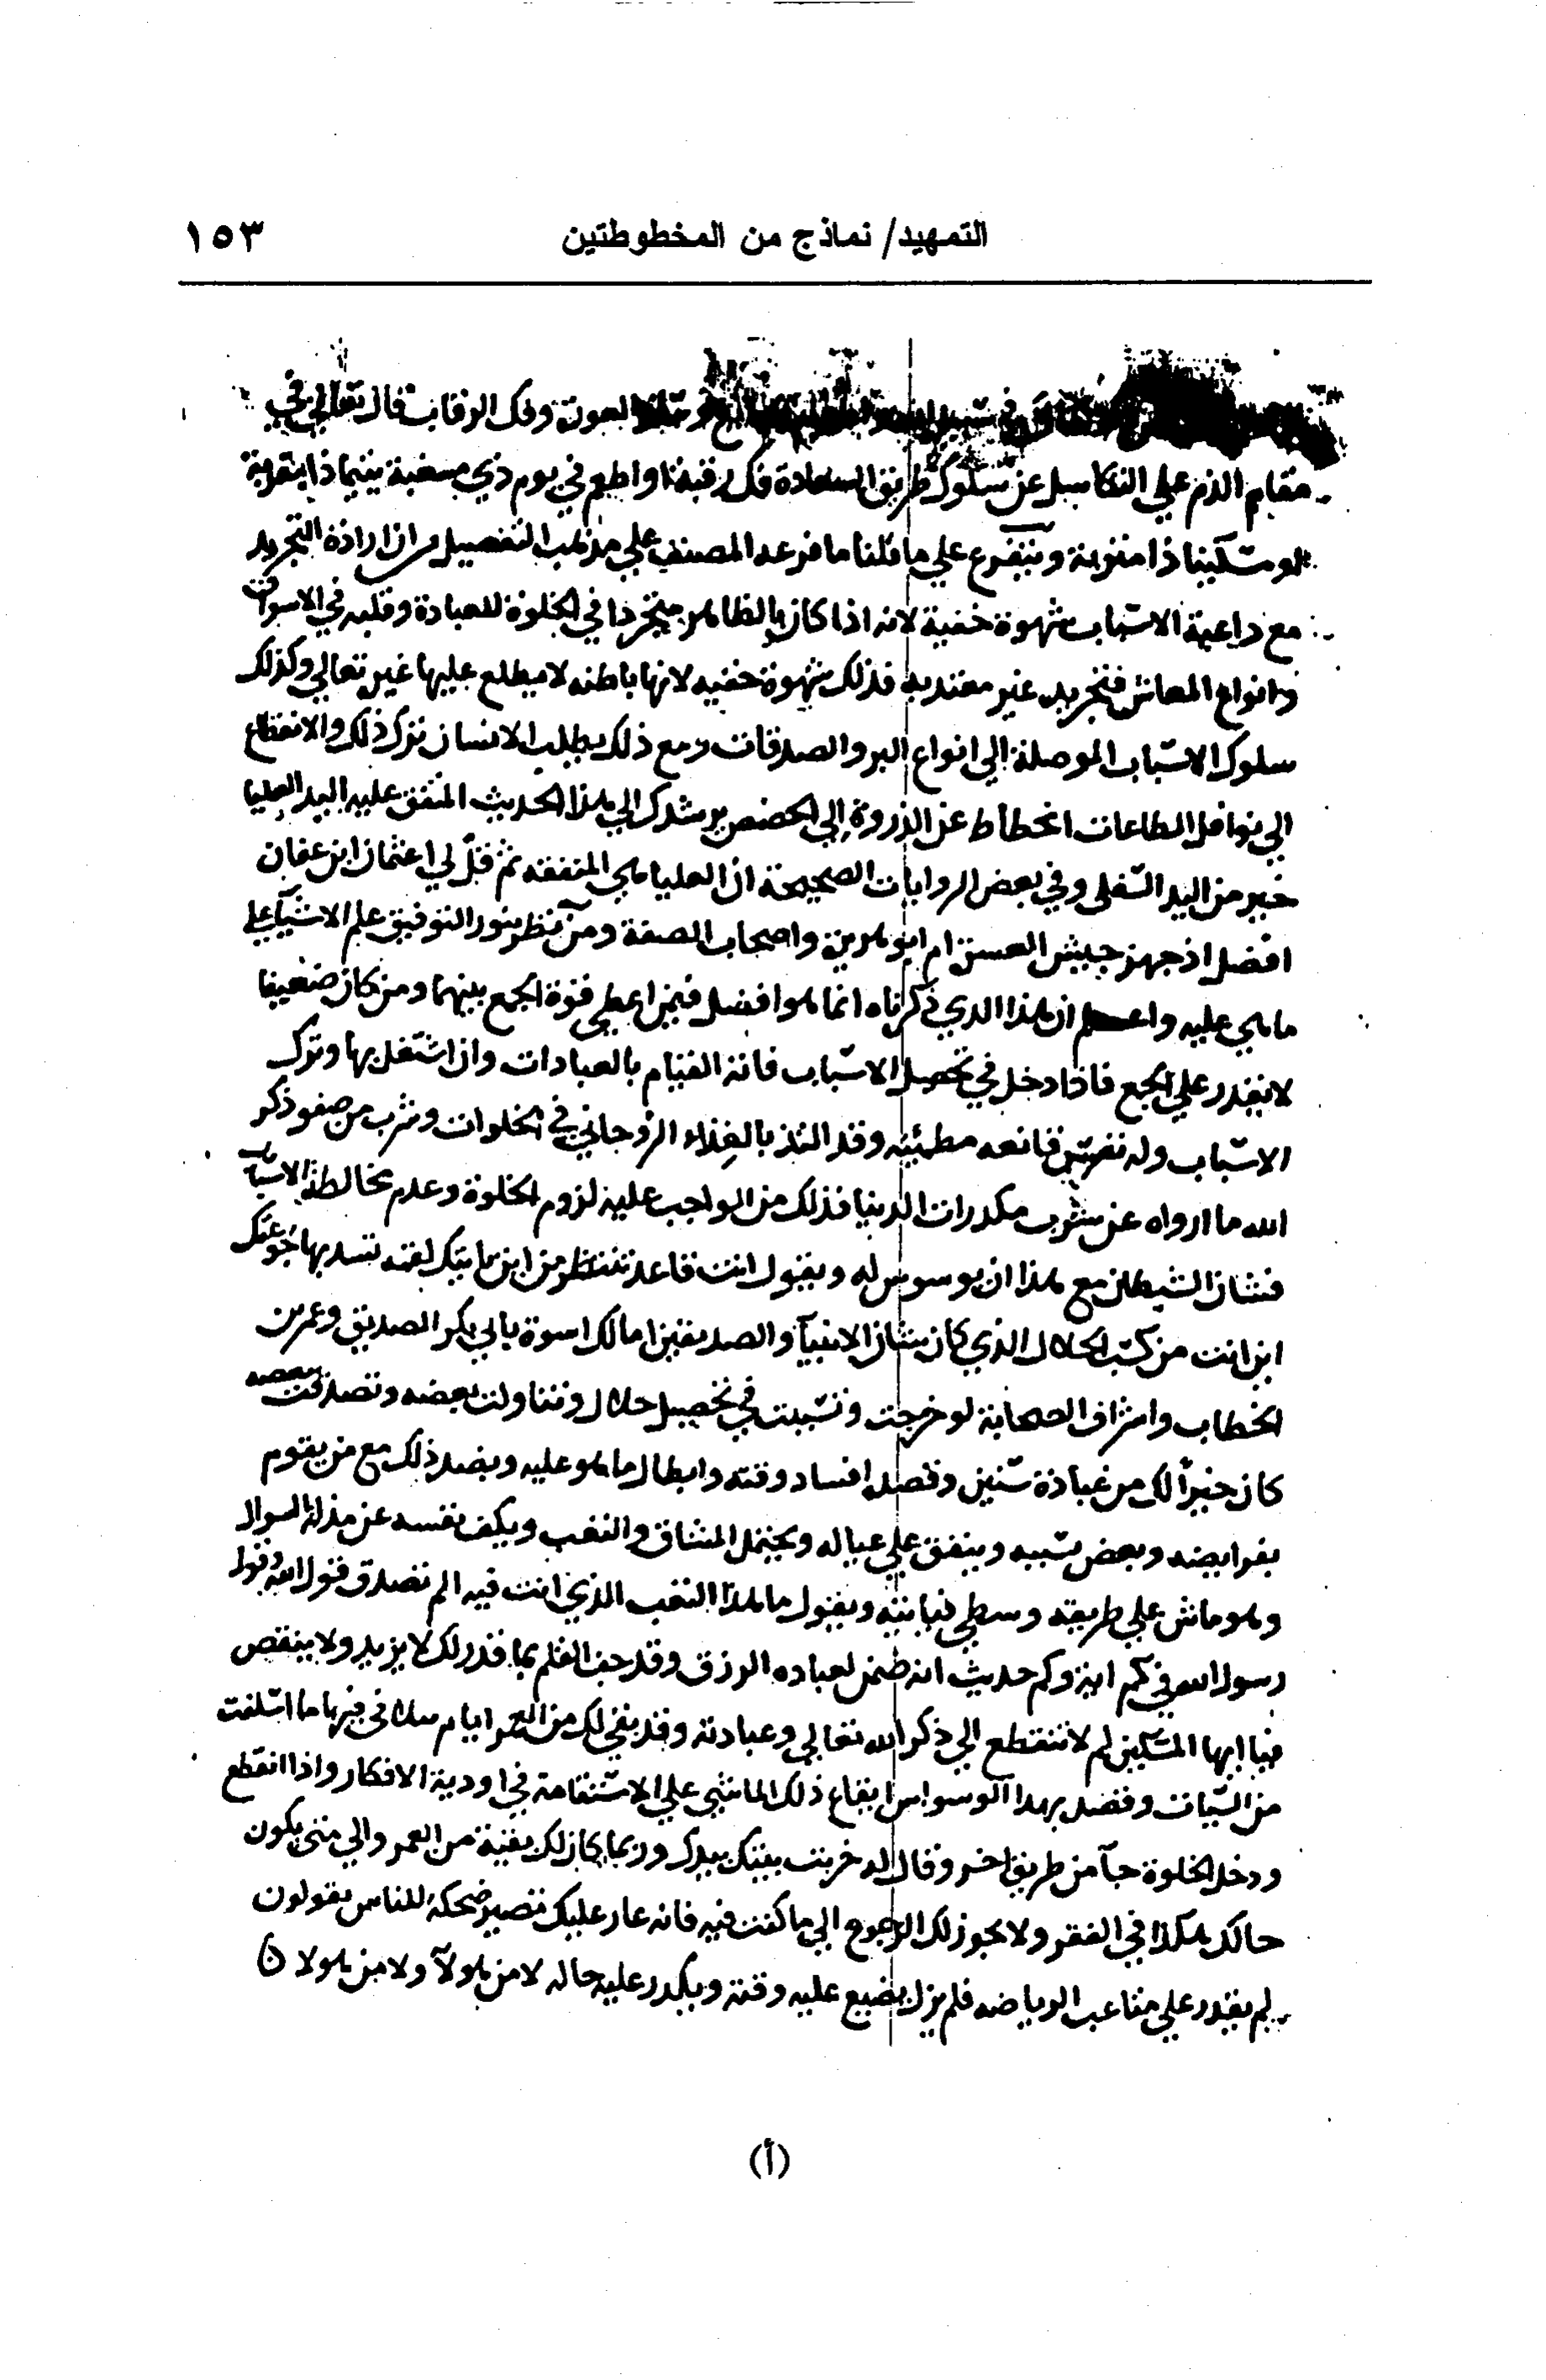 التمهيد/ نماذج من المخطوطتين ١٥٣
العورة وفك الرقاب قال تعالى في
مقام الذم علي التكاسل عن سلوك طريق السعادة فك رقبة او اطعم في يوم ذي مسغبة يتيما ذا مقربة
او مسكينا ذا متربة ويتفرع علي ما قلنا ما فرعه المصنف علي مذهب التفصيل من ان ارادة التجريد
مع داعية الاسباب شهوة خفية لانه اذا كان بالظاهر متجردا في الخلوة للعبادة وقلبه في الاسواق
وانواع المعاش فتجريده غير معتد به فذلك شهوة خفيه لانها باطنه لا يطلع عليها غيره تعالي وكذلك
سلوك الاسباب الموصلة الي انواع البر والصدقات ومع ذلك يطلب الانسان ترك ذلك والانقطاع
الي نوافل الطاعات انحطاط عن الذروة الي الحضيض يرشدك الي هذا الحديث المتفق عليه اليد العليا
خير من اليد السفلى وفي بعض الروايات الصحيحة ان العليا هي المنفقه ثم قل لي اعثمان ابن عفان
افضل اذ جهز جيش العسرة ام ابو هريرة واصحاب الصفة ومن نظر بنور التوفيق علم الاشيآ علي
ما هي عليه واعلم ان هذا الذي ذكرناه انما هو افضل فيمن اعطي قوة الجمع بينهما ومن كان ضعيفا
لا يقدر علي الجمع فاذا دخل في تحصيل الاسباب فاته القيام بالعبادات وان اشتغل بها وترك
الاسباب وله نفس قانعه مطمئنه وقد التذ بالغذاء الروحاني في الخلوات وشرب من صفو ذكر
الله ما ارواه عن شرب مكدرات الدنيا فذلك من الواجب عليه لزوم الخلوة وعدم مخالطة الاسباب
فشان الشيطان مع هذا ان يوسوس له ويقول انت قاعد تنتظر من اين ياتيك لقمه تسد بها جوعتك
اين انت من كسب الحلال الذي كان شان الانبيآ والصديقين اما لك اسوة بابي بكر الصديق وعمر بن
الخطاب واشراف الصحابة لو خرجت وتسببت في تحصيل حلال وتناولت بعضه وتصدقت ببعضه
كان خيراً لك من عبادة سنين وقصده افساد وقته وابطال ما هو عليه وبضد ذلك مع من يقوم
بفرايضه وبعض سببه وينفق علي عياله ويحتمل المشاق والتعب ويكف نفسه عن مذلة السوال
وهو ماش علي طريقه وسطي فياتيه ويقول ما هذا التعب الذي انت فيه الم تصدق قول الله وقول
رسول الله في كم اية وكم حديث انه ضمن لعباده الرزق وقد جف القلم بما قدر لك لا يزيد ولا ينقص
فيا ايها المسكين لم لا تنقطع الي ذكر الله تعالي وعبادته وقد بقي لك من العمر ايام تلافى فيها ما اسلفت
من السيات وقصد بهذا الوسواس ايقاع ذلك الماشي علي الاستقامة في اودية الافكار واذا انقطع
ودخل الخلوة جآ من طريق اخر وقال له خربت بيتك بيدك وربما كان لك بقية من العمر والي متى يكون
حالك هكذا في الفقر ولا يجوز لك الرجوع الي ما كنت فيه فانه عار عليك تصير ضحكة للناس يقولون
لم يقدر علي متاعب الرياضه فلم يزل يضيع عليه وقته ويكدر عليه حاله لا من هولآ ولا من هولا
(أ)